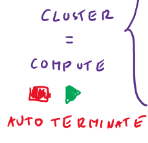 CLUSTER
=
COMPUTE
AUTO TERMINATE